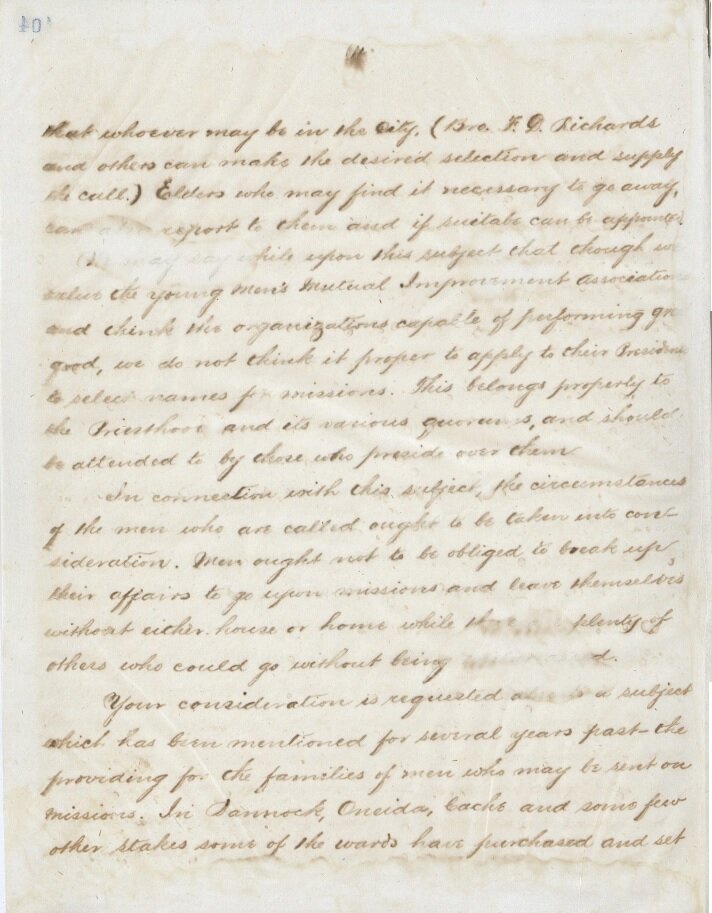 that whoever may be in the City. (Bro. F. D. Richards
and others can make the desired selection and supply
the call.) Elders who may find it necessary to go away,
can also report to them and if suitable can be appointed.
may say while upon this subject that though we
value the Young Men's Mutual Improvement Associations
and think the organizations capable of performing
good, we do not think it proper to apply to their Presidents
to select names for missions. This belongs properly to
the Priesthood and its various quorums, and should
be attended to by those who preside over them
In connection with this subject, the circumstances
of the men who are called ought to be taken into con-
sideration. Men ought not to be obliged to break up
their affairs to go upon missions and leave themselves
without either house or home while there are plenty of
others who could go without being
Your consideration is requested also to a subject
which has been mentioned for several years past – the
providing for the families of men who may be sent on
missions. In Bannock, Oneida, Cache and some few
other stakes some of the wards have purchased and set